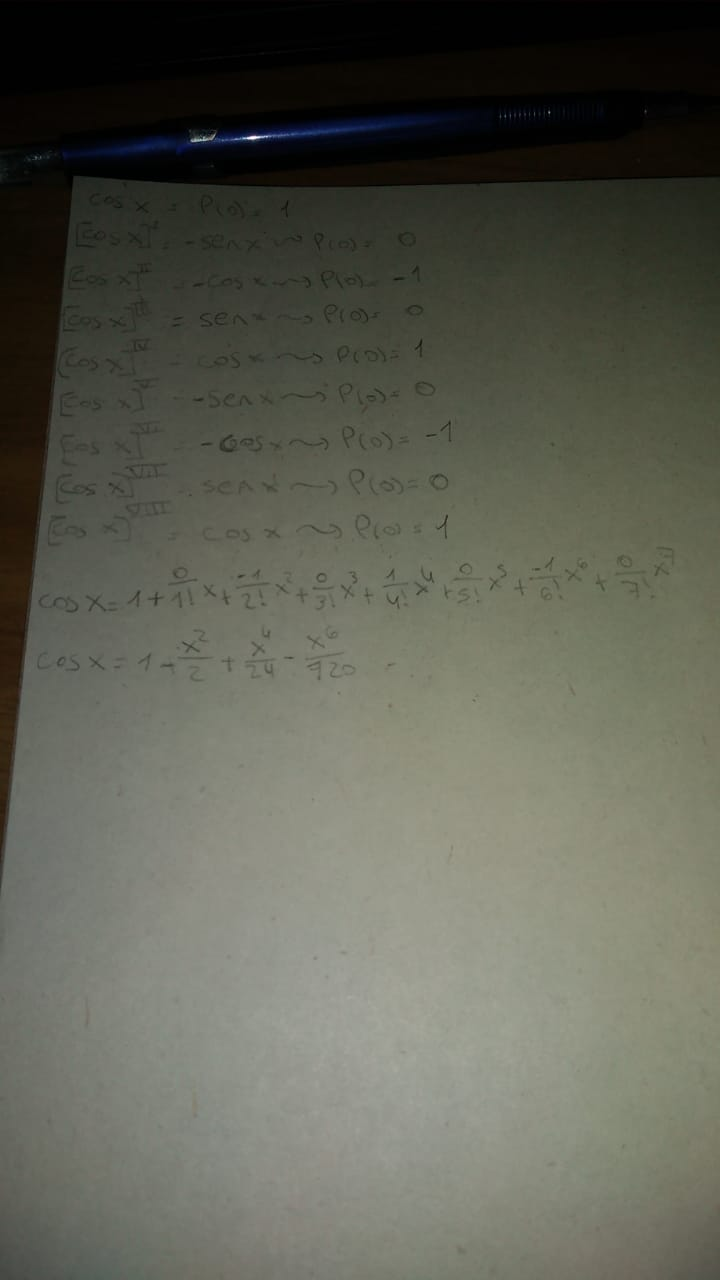 cos x = P(0) = 1
[cos x]^I = -sen x ~> P(0) = 0
[cos x]^II = -cos x ~> P(0) = -1
[cos x]^III = sen x ~> P(0) = 0
[cos x]^IV = cos x ~> P(0) = 1
[cos x]^V = -sen x ~> P(0) = 0
[cos x]^VI = -cos x ~> P(0) = -1
[cos x]^VII = sen x ~> P(0) = 0
[cos x]^VIII = cos x ~> P(0) = 1
cos x = 1 + 0/1! x + -1/2! x^2 + 0/3! x^3 + 1/4! x^4 + 0/5! x^5 + -1/6! x^6 + 0/7! x^7
cos x = 1 - x^2/2 + x^4/24 - x^6/720